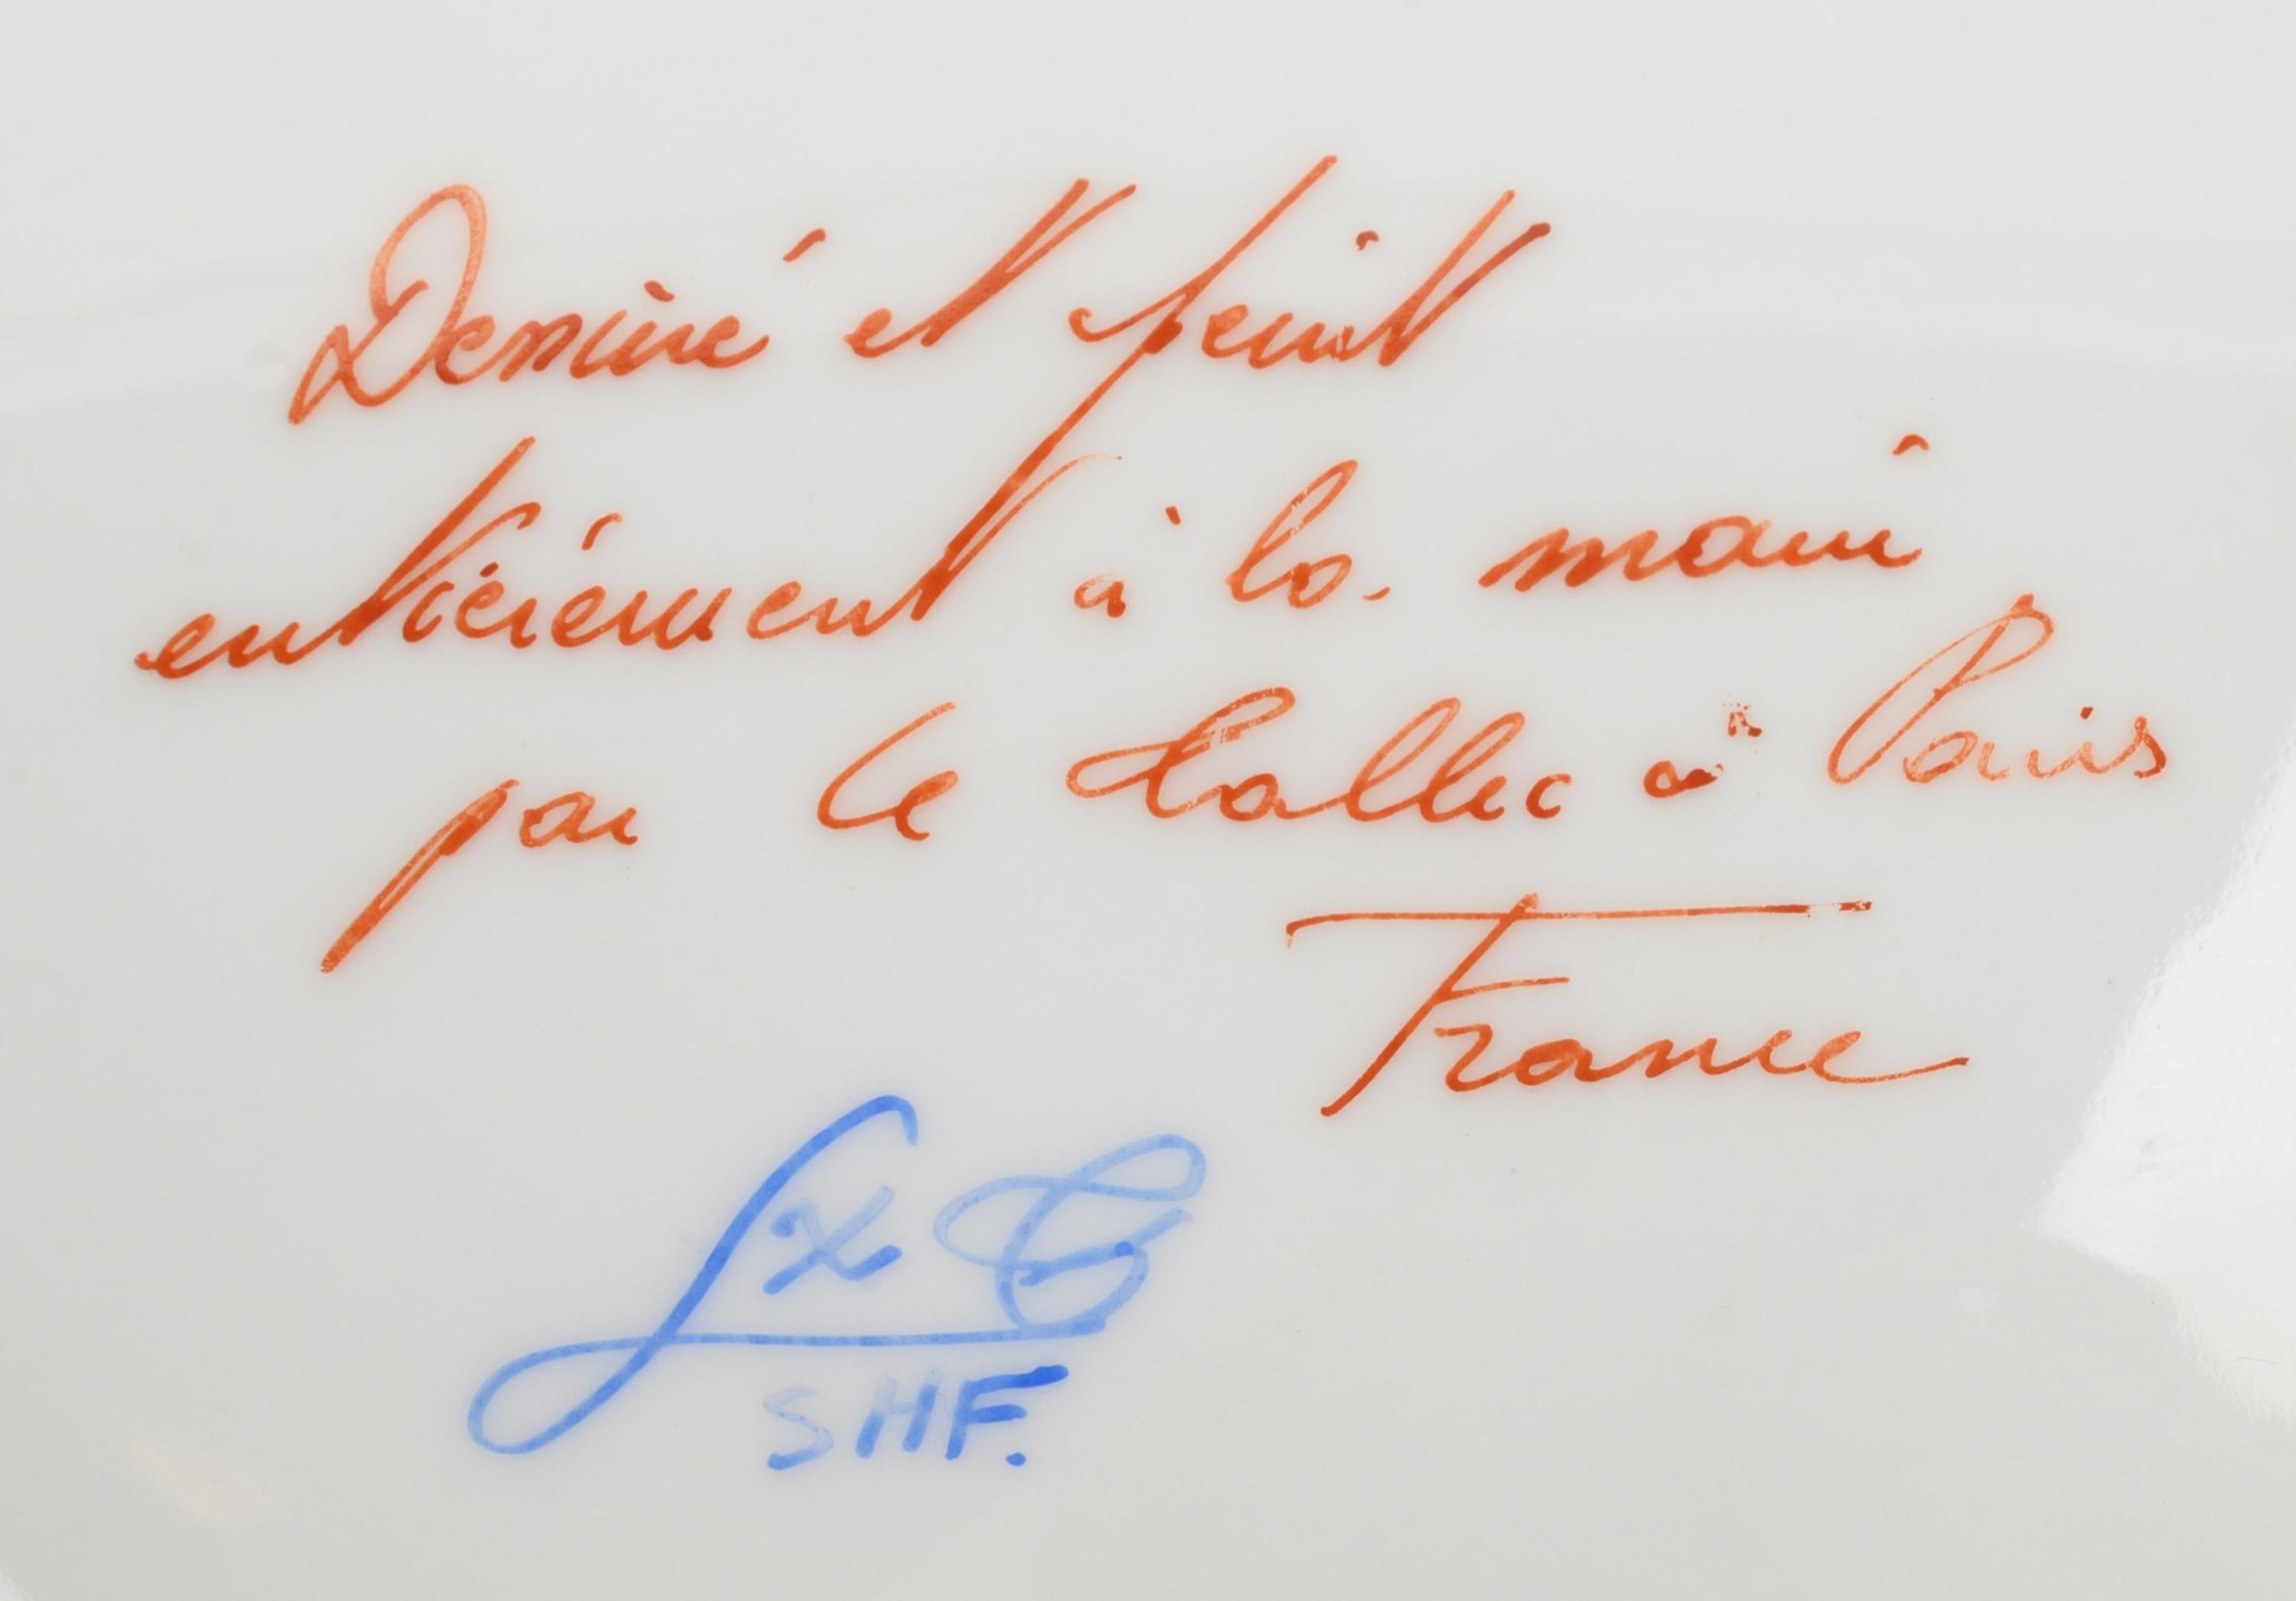 Dessiné et peint
entiérement à la main
par Le Tallec à Paris
France
SHF.